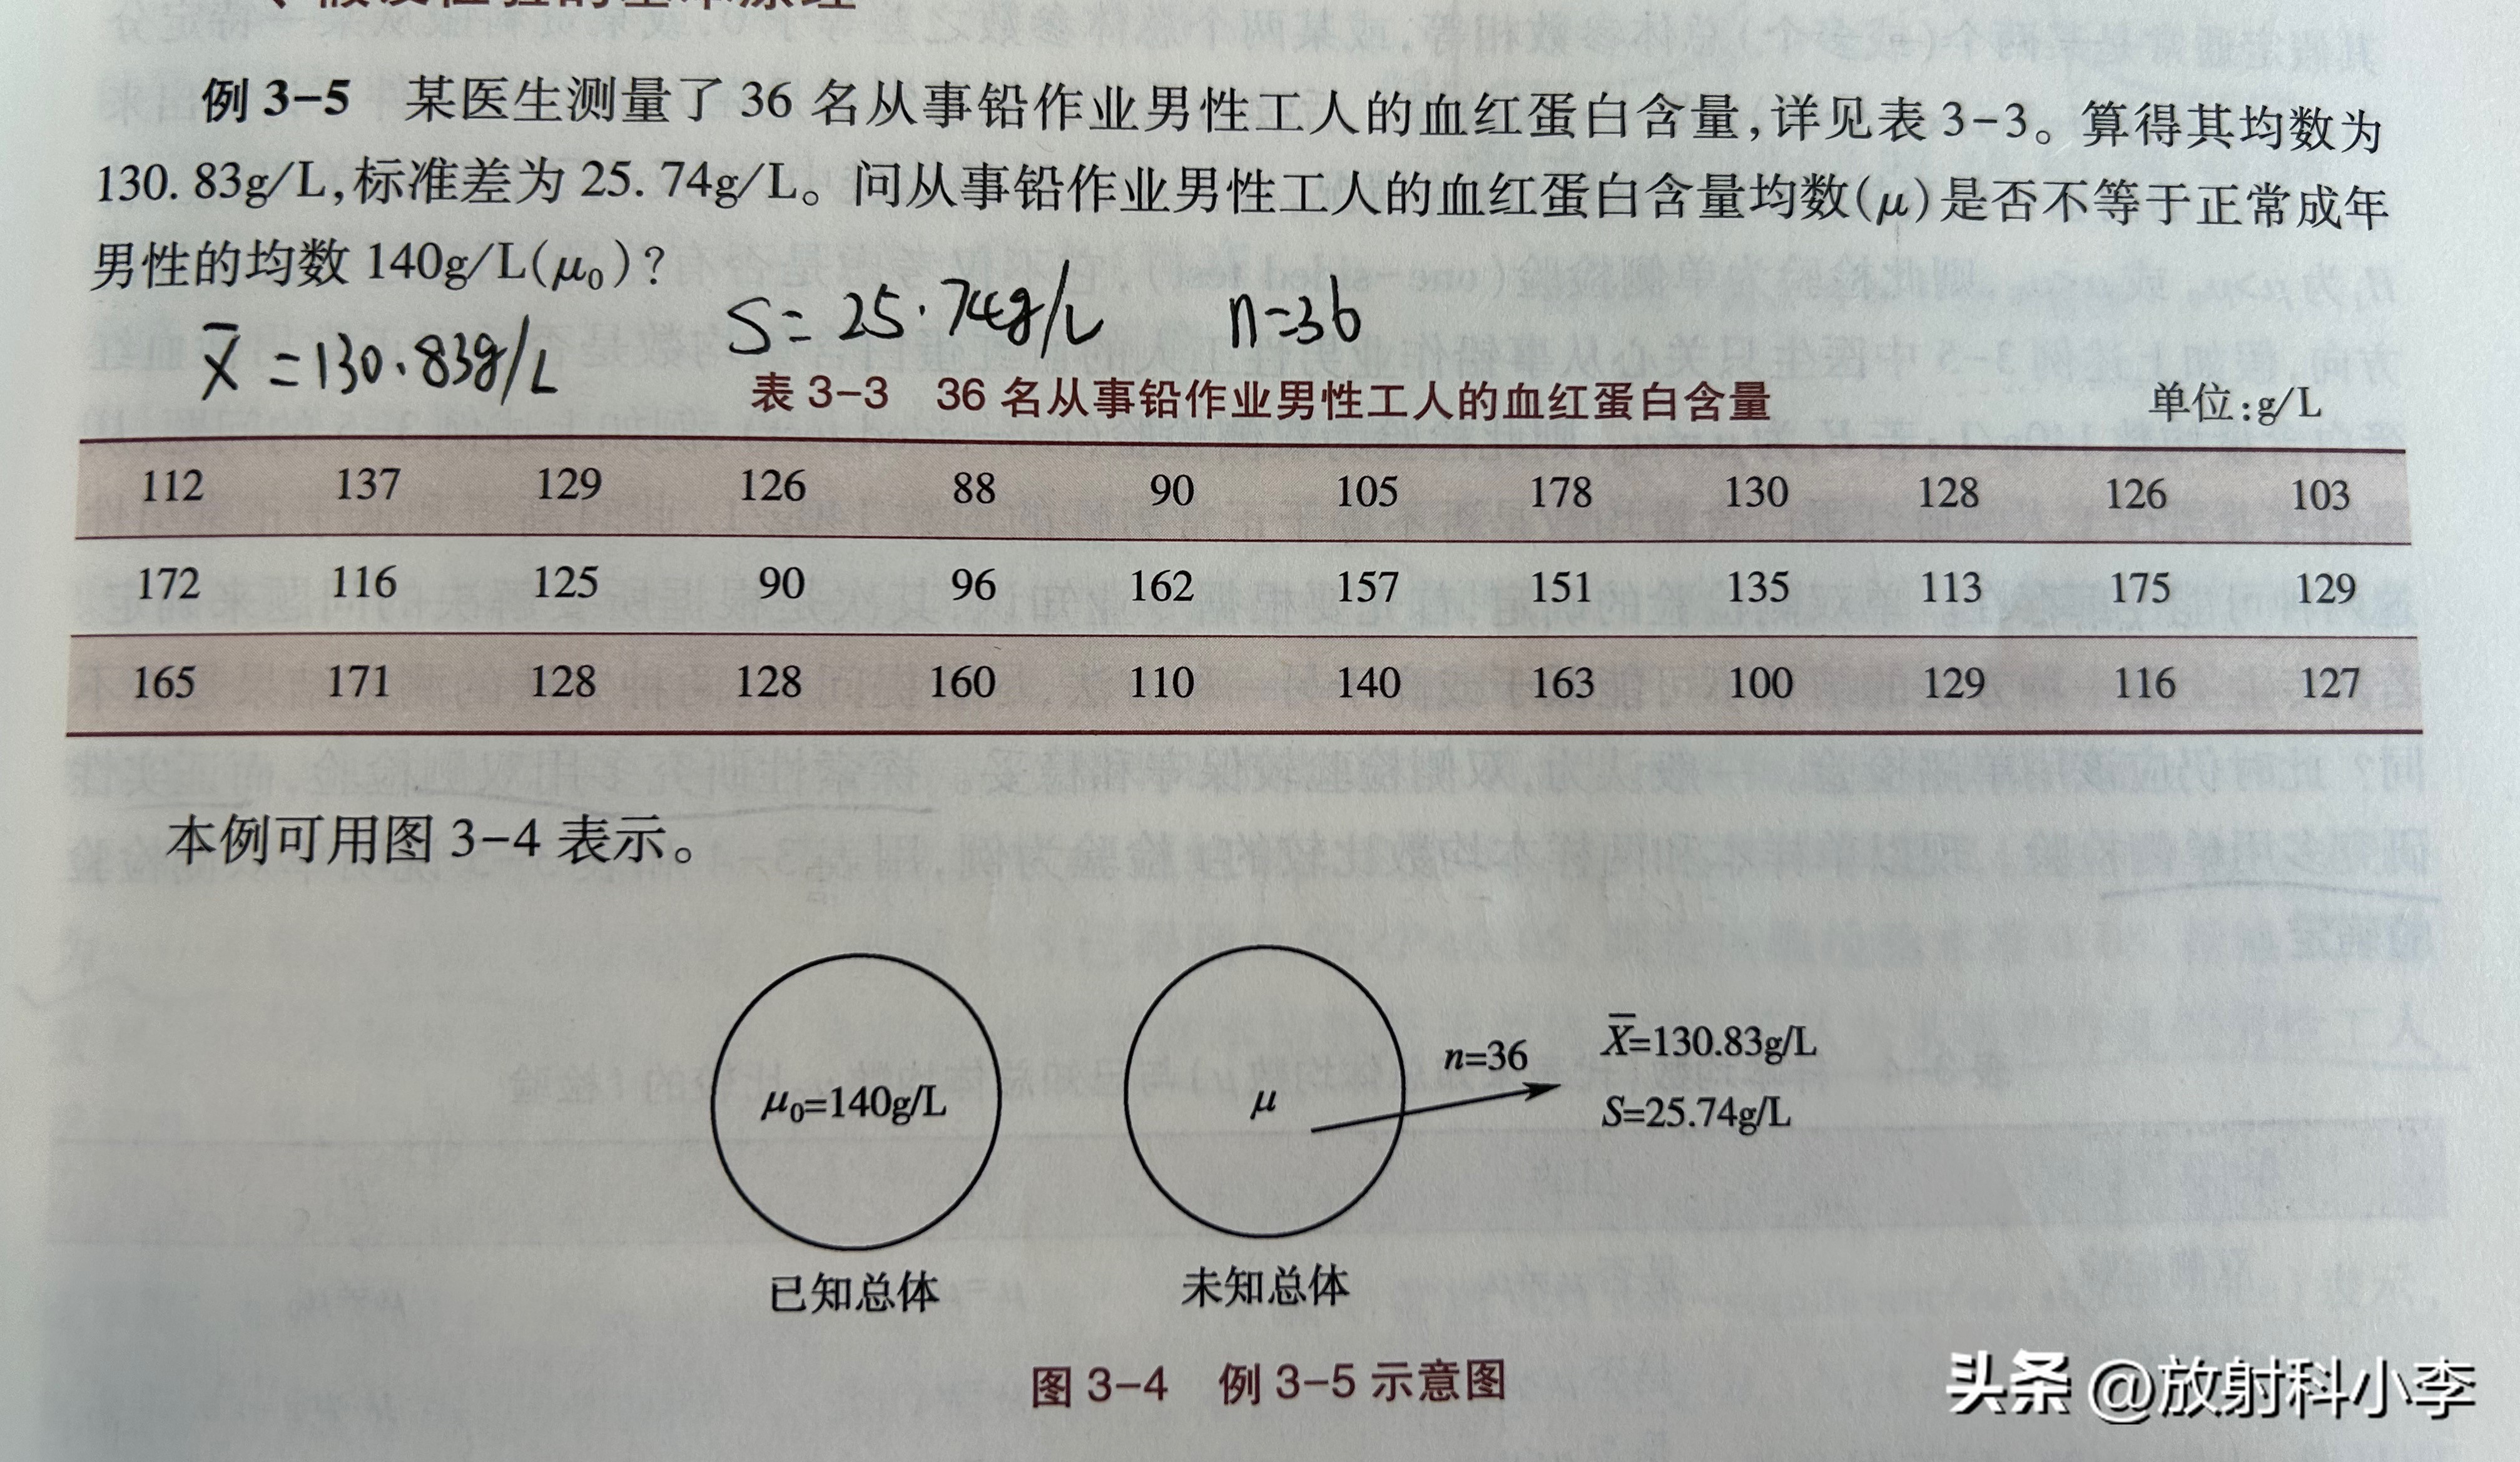 例 3-5 某医生测量了 36 名从事铅作业男性工人的血红蛋白含量,详见表 3-3。算得其均数为
130. 83g/L,标准差为 25. 74g/L。问从事铅作业男性工人的血红蛋白含量均数(μ)是否不等于正常成年
男性的均数 140g/L(μ₀)?
X̄ =130.83g/L S= 25.74g/L n=36
表 3-3 36 名从事铅作业男性工人的血红蛋白含量 单位:g/L
112 137 129 126 88 90 105 178 130 128 126 103
172 116 125 90 96 162 157 151 135 113 175 129
165 171 128 128 160 110 140 163 100 129 116 127
本例可用图 3-4 表示。
μ₀=140g/L μ n=36 X̄=130.83g/L
S=25.74g/L
已知总体 未知总体
图 3-4 例 3-5 示意图
头条 @放射科小李